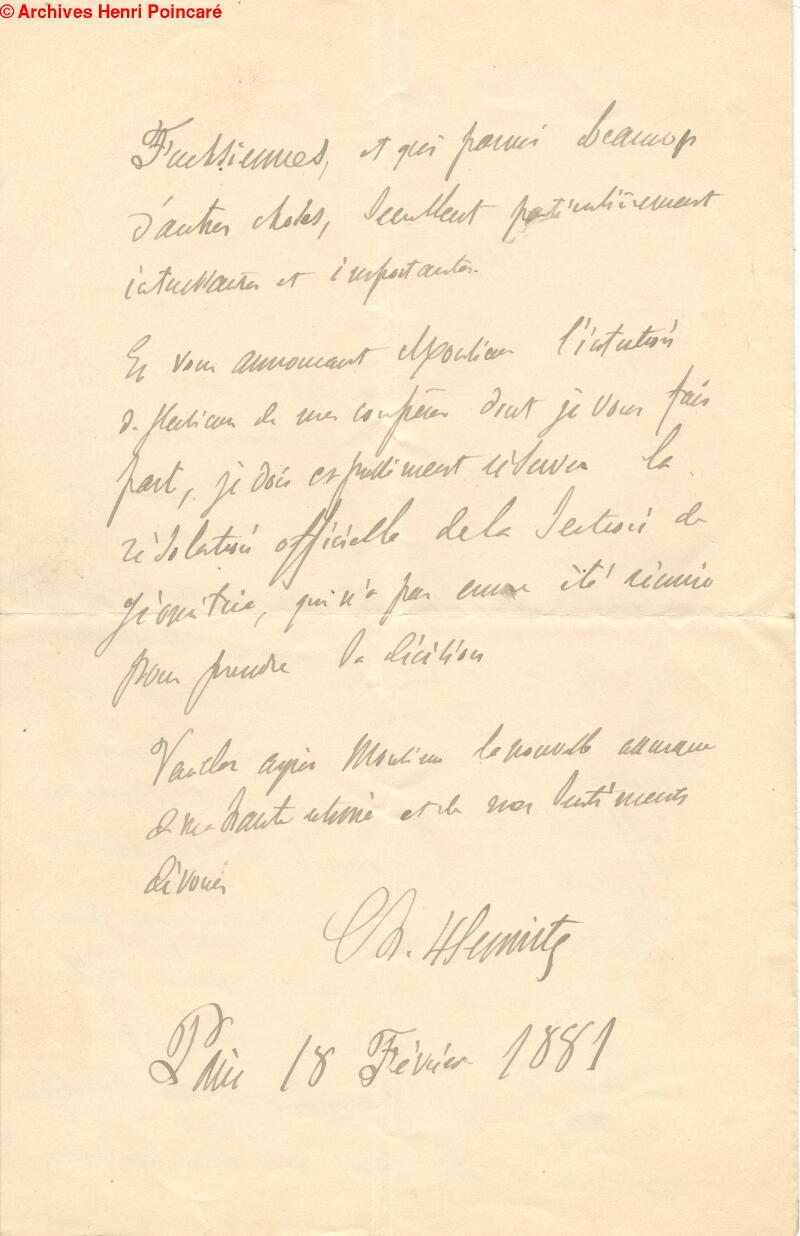 © Archives Henri Poincaré
Fuchsiennes, et qui parmi beaucoup
d'autres choses, semblent particulièrement
intéressantes et importantes.
En vous annonçant Monsieur l'intention
de plusieurs de mes confrères dont je vous fais
part, je dois expressément réserver la
résolution officielle de la Section de
géométrie, qui n'a pas encore été réunie
pour prendre sa décision
Veuillez agréer Monsieur la nouvelle assurance
de ma haute estime et de mes sentiments
dévoués
Ch. Hermite
Paris 18 Février 1881